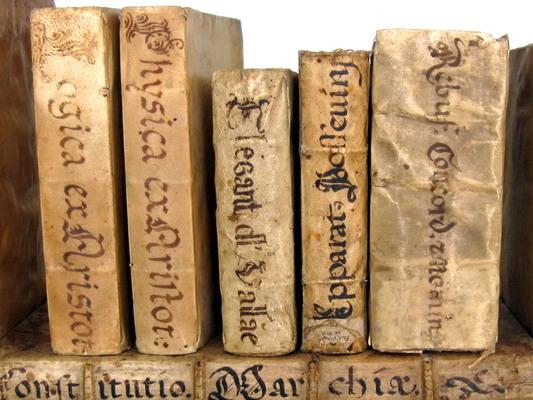 Logica ex Aristot
Physica ex Aristot:
Elegant. d' Vallae
Apparat: Possevini
Rebuf: Concord.
Const itutio. Mar chiæ.